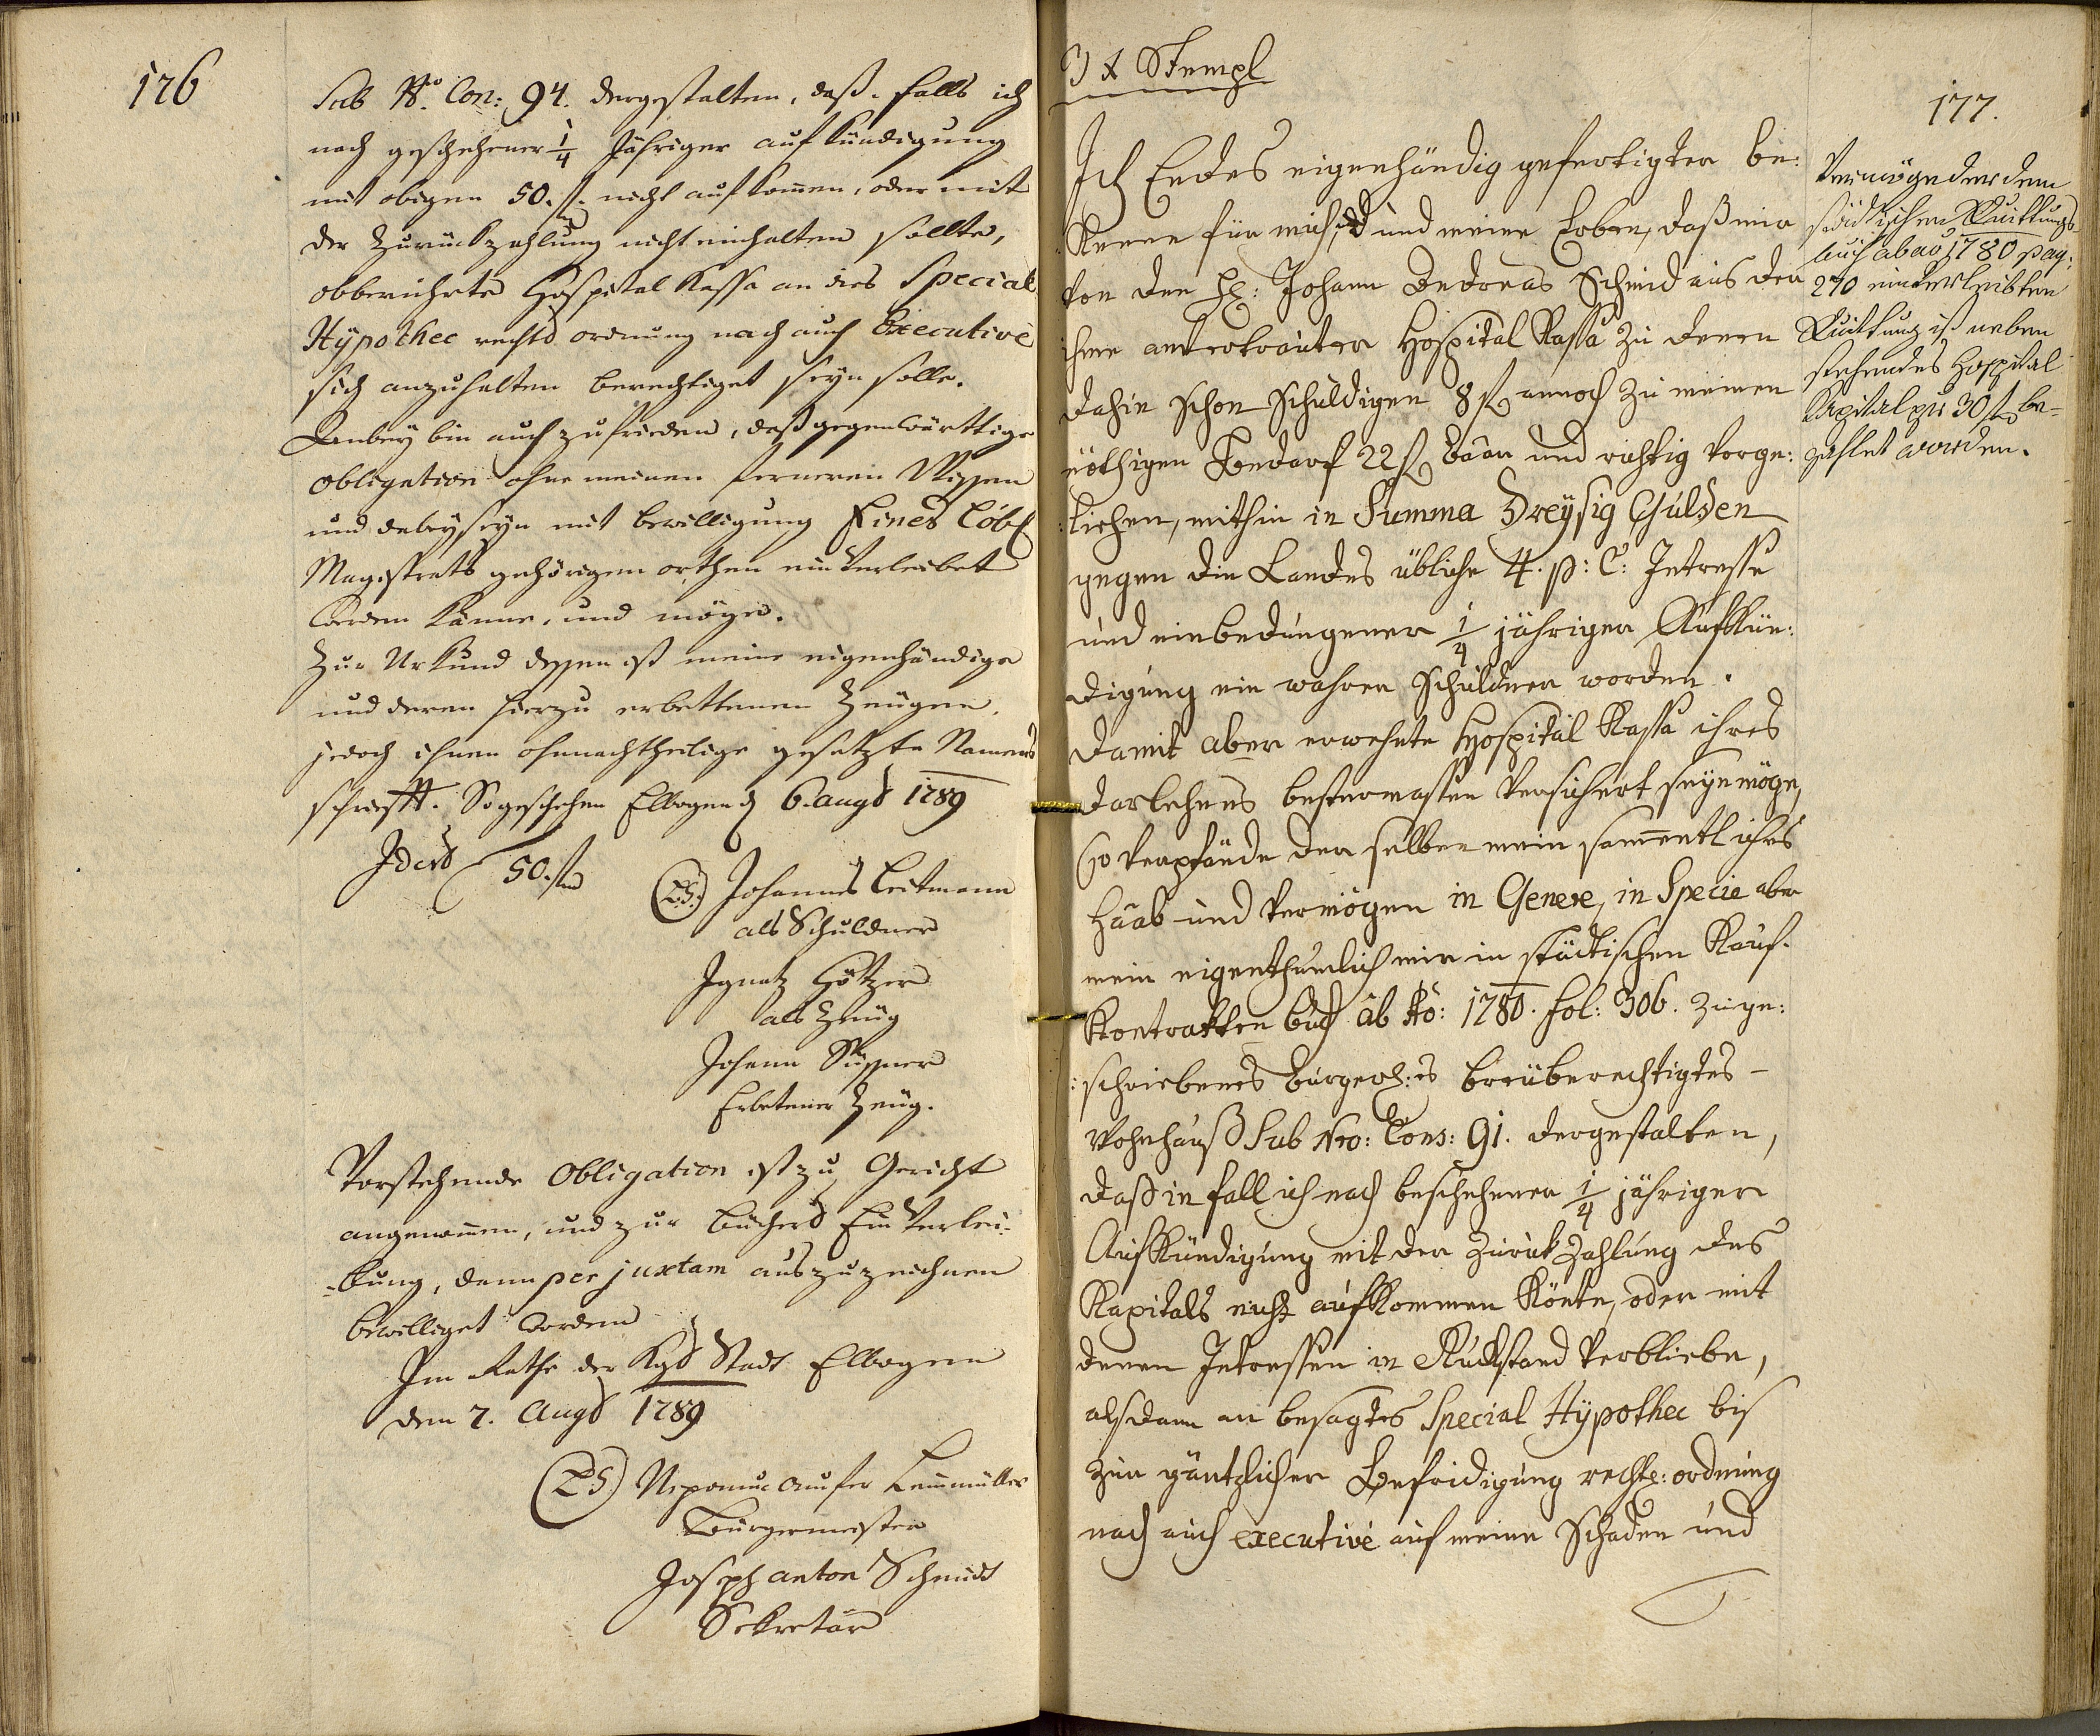 176
Sub No. Con: 94. dergestalten, daß, falls ich
nach geschehener 1/4 Jähriger aufkündigung
mit obigen 50. f. nicht aufkom̅en, oder mit
der Zurückzahlung nicht einhalten sollte,
obberührte Hospital Kassa an dies Special
Hypothec rechts ordnung nach auch Executive
sich anzuhalten berechtiget seyn solle.
Anbey bin auch zufrieden, daß gegenwärttige
obligation ohne meinen ferneren Wissen
und dabeyseyn mit bewilligung Eines Löbl
Magistrats gehörigen orthen ein Verleibet
werden könne, und möge.
Zur Urkund dessen ist meine eigenhändige
und deren hierzu erbettenen Zeugen,
jedoch ihnen ohnnachtheilige gesetzte Namens
schrifft. So geschehen Elbogen d 6. augs 1789
Idest 50. f
(L.S.) Johannes Leitmann
als Schuldner
Ignatz Götzer
als Zeug
Johann Süssner
Erbetener Zeug.
Vorstehende Obligation ist zu Gericht
angenom̅en, und zur Bücher Ein Verlei-
-bung, dann per juxtam auszuzeichnen
bewilliget worden
Im Rathe der Kgs Stadt Elbogen
den 7. Augs 1789
(LS) Nepomuc
Burgermeister
Joseph anton Schmidt
Sekretär
3 x Stempl
177.
Ich Endes eigenhändig gefertigter be:
kenne für mich, und meine Erben, daß mir
von den H: Johann Andreas Schmid aus der
ihme antvertrauten Hospital Kassa zu denen
dahin schon schuldigen 8 f annoch zu meinen
nöthigen Bedarf 22 f baar und richtig vorge:
:liehen, mithin in Summa Dreysig Gulden
gegen die Landes übliche 4. p: C: Intresse
und einbedungener 1/4 jähriger Aufkün:
digung ein wahrer Schuldner worden.
Damit aber erwehnte Hospital Kassa ihres
Darlehnes bestermassen versichert seyn möge,
so verpfände derselben mein sam̅entliches
Haab und Vermögen in Genere, in Specie aber
mein eigenthumlich mir in städtischen Kauf-
Kontrakten buch ab Ao: 1780. fol: 306. zuge:
:schriebenes Burgerl:es breüberechtigtes –
Wohnhauß Sub Nro: Cons: 91. dergestalten,
daß in fall ich nach beschehener 1/4 jähriger
Aufkündigung mit der Zuruk Zahlung des
Kapitals nicht aufkommen könte, oder mit
denen Intressen in Ruckstand verbliebe,
alsdann an besagtes Special Hypothec bis
zur gäntzlicher Befridigung rechts: ordnung
nach auch executive auf meine Schaden und
Vermög des dem
städtischen Quittungs
buch ab ao 1780 pag:
270 einverleibten
Quittung ist neben
stehendes Hospital
Kapital per 30 f be-
zahlet worden.